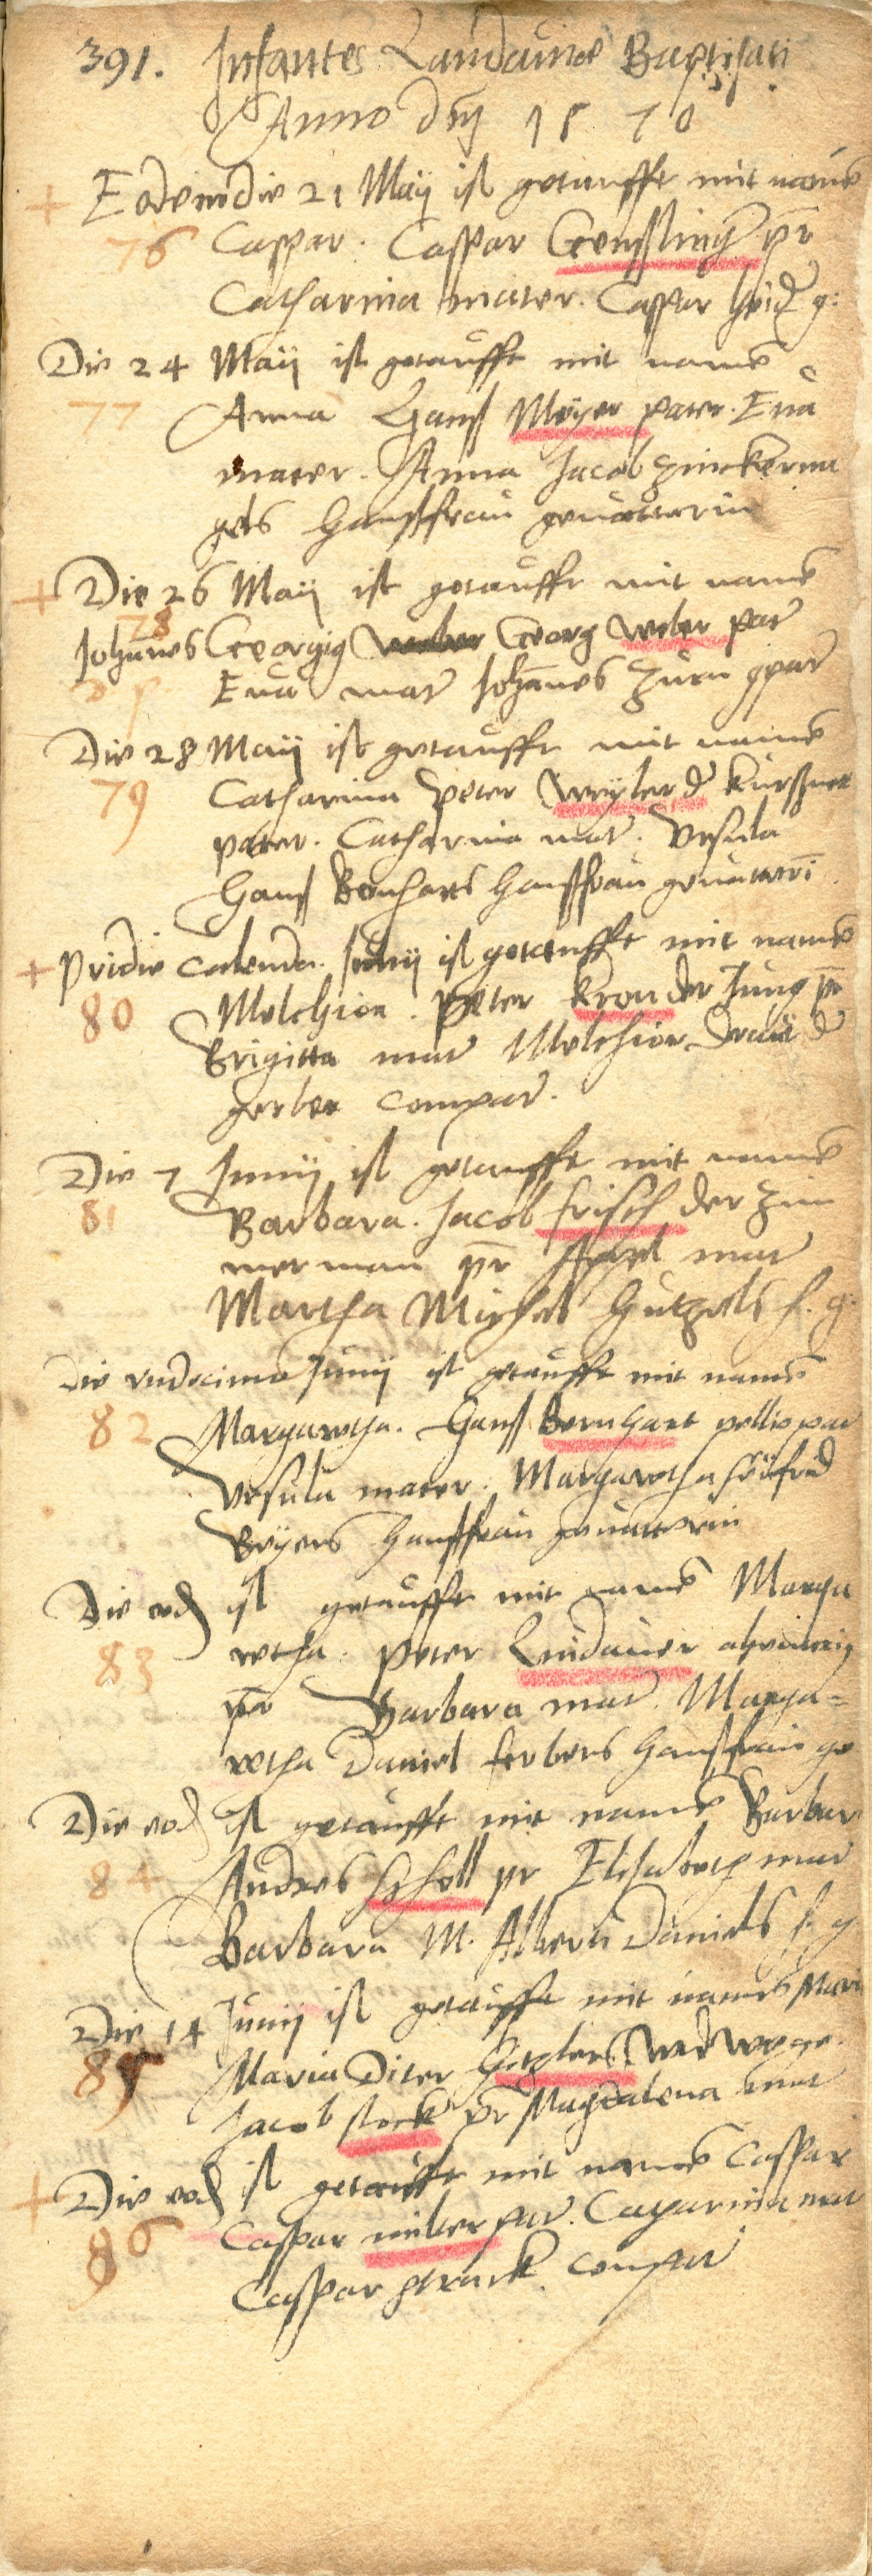 391. Infantes Landauiae Baptisati
Anno dnj 1570
+ Eodem die 21 Maij ist getaufft mit name
76 Caspar. Caspar pr
Catharina mater. Caspar g:
Die 24 Maij ist getaufft mit name
77 Anna Hans Meyer pater. Eua
mater. Anna Jacob Zinckerna
gels Hausfrau geuatterin
+ Die 26 Maij ist getaufft mit name
78
Johanes Georgig Georg weber pat
Eua mat Johanes Zurn gpat
Die 28 Maij ist getaufft mit name
79 Catharina Peter Weyler d kurschner
pater. Catharina mat. Vrsula
Hans Bernharts Hausfrau geuatteri
+ Pridie Calenda. Junij ist getaufft mit name
80 Melchior. Peter Kron der Jung pr
Brigitta mat Melchior d
gerber compat.
Die 7 Junij ist getaufft mit name
81 Barbara. Jacob frisch der Zim
merman pr Apel mat
Martha Michel h. g.
Die vndecimo Junij ist getaufft mit name
82 Margaretha. Hans Bernhart pellio pat
Vrsula mater. Margaretha Seifrid
Beyers Hausfrau geuatterin
Die eod ist getaufft mit name Marga
83 retha. Peter Lindauer
pr Barbara mat. Marga=
retha Daniel ferbers Hausfrau ge
Die eod ist getaufft mit name Barbar
84 Andres Scholl pr Elisabeth mat
Barbara M. Alberti Daniels h. g
Die 14 Junij ist getaufft mit names Mari
85 Maria Diter
Jacob stock pr Magdalena mat
+ Die eod ist getaufft mit name Caspar
86 Caspar miller pat. Catharina mat
Caspar strack compat